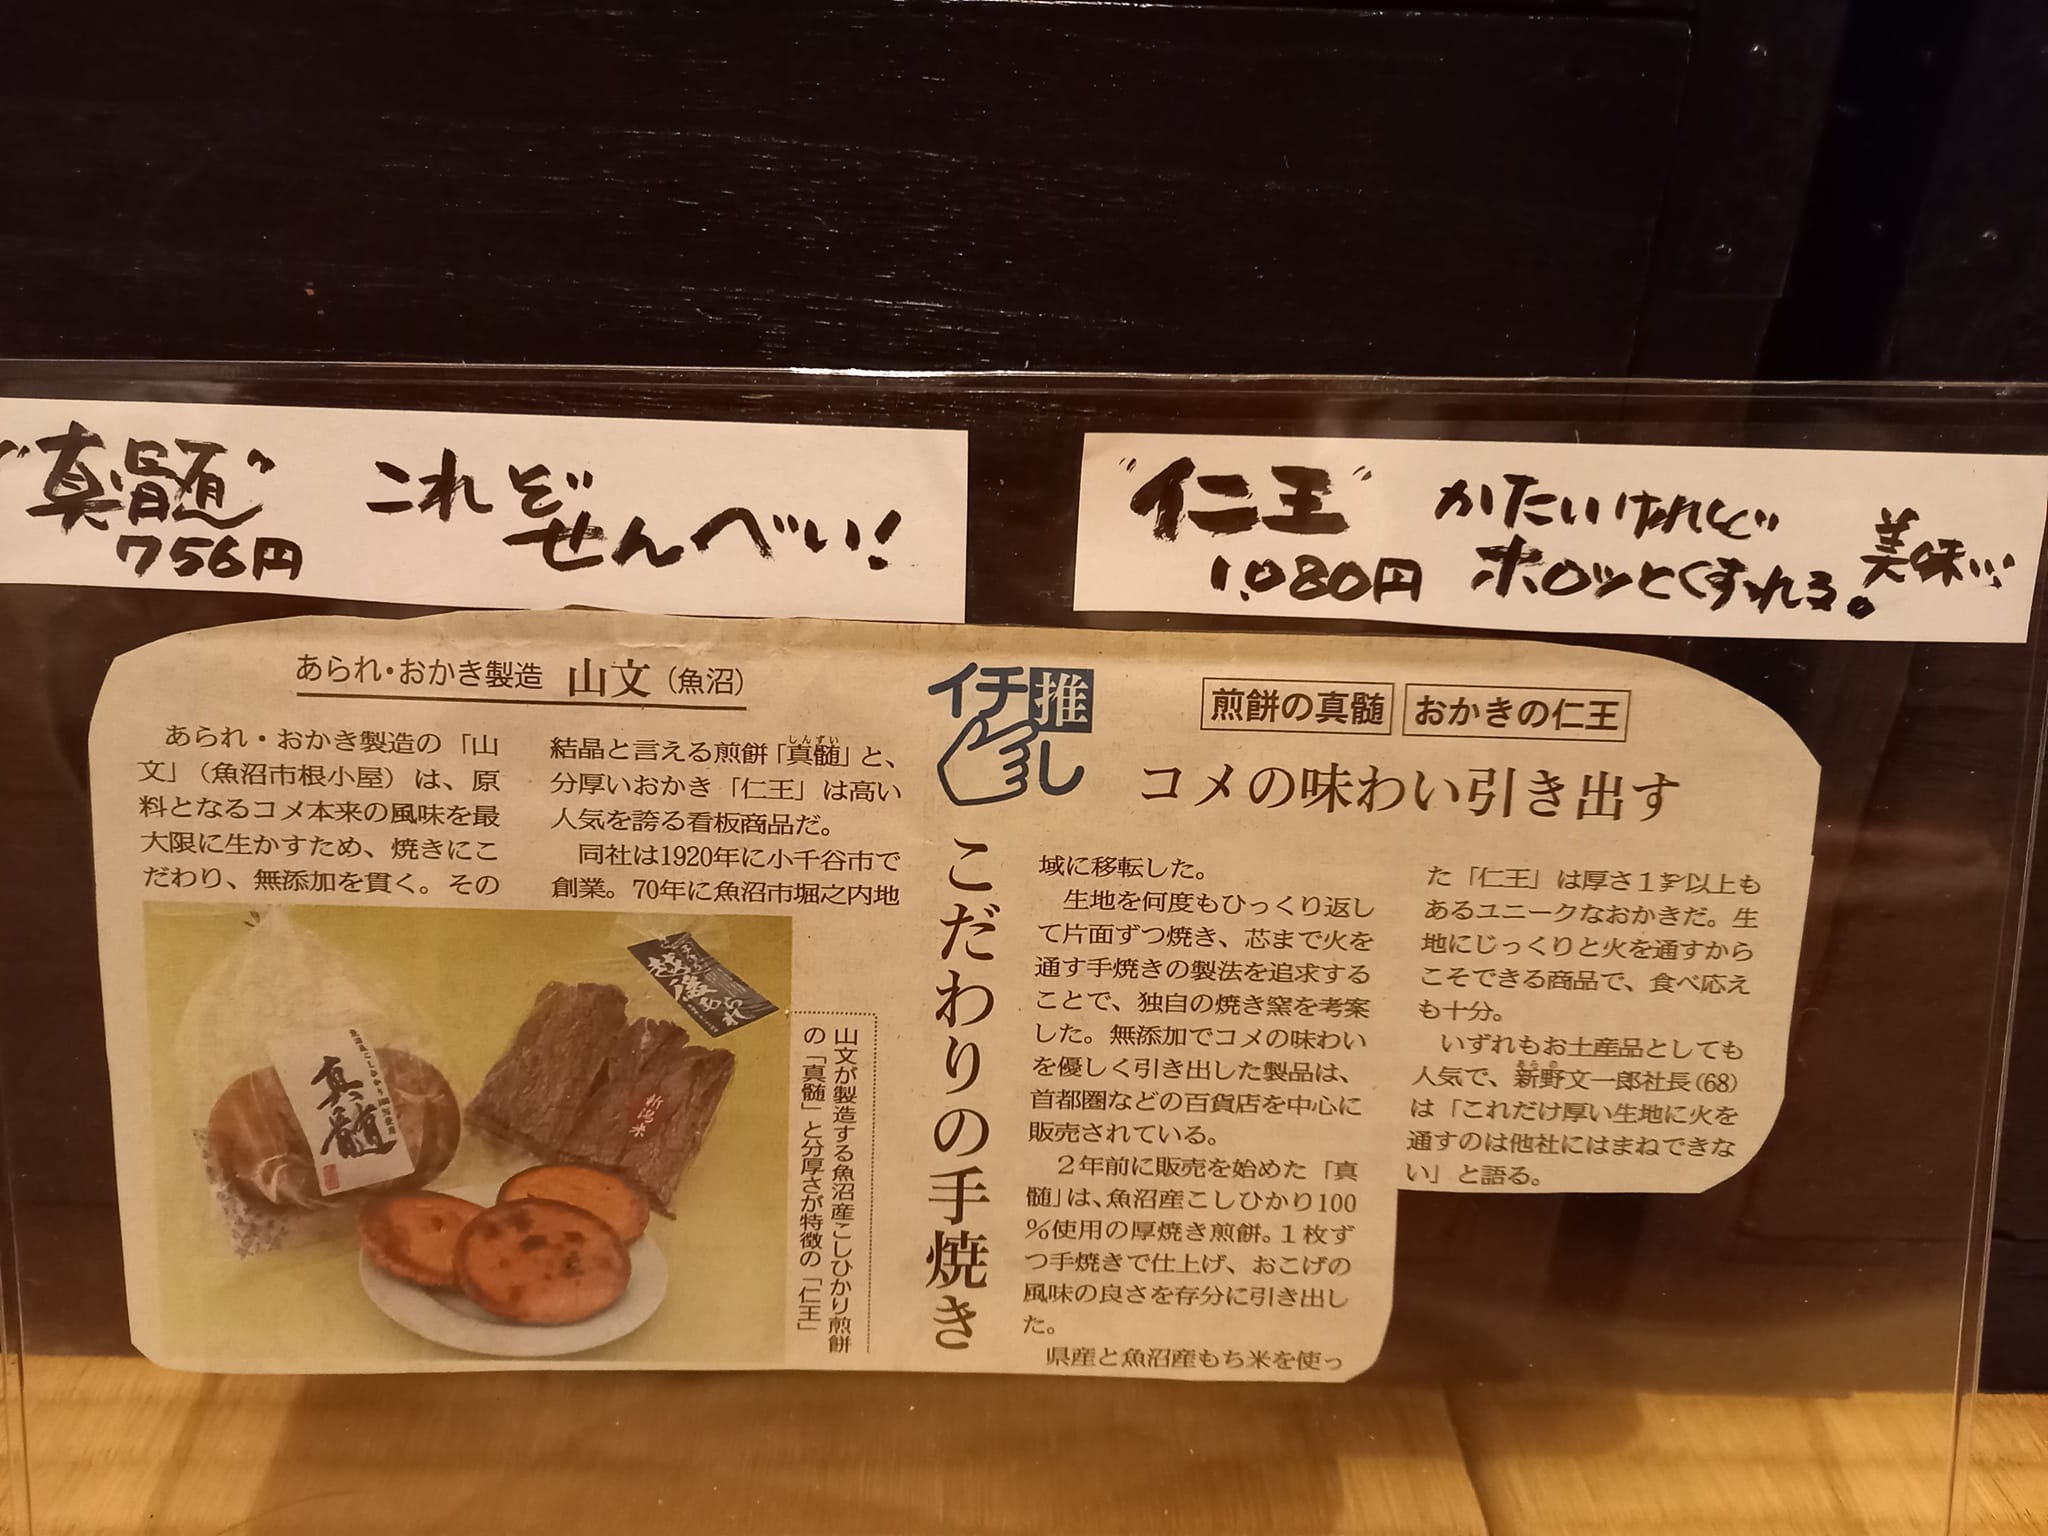 "真髄"
756円
これぞ
せんべい!
"仁王"
1,080円
かたいけれど
ホロッとくずれる。
美味い
あられ・おかき製造 山文(魚沼)
イチ推し
煎餅の真髄 おかきの仁王
コメの味わい引き出す
こだわりの手焼き
あられ・おかき製造の「山
文」(魚沼市根小屋)は、原
料となるコメ本来の風味を最
大限に生かすため、焼きにこ
だわり、無添加を貫く。その
結晶と言える煎餅「真髄」と、
しんずい
分厚いおかき「仁王」は高い
人気を誇る看板商品だ。
同社は1920年に小千谷市で
創業。70年に魚沼市堀之内地
域に移転した。
生地を何度もひっくり返し
て片面ずつ焼き、芯まで火を
通す手焼きの製法を追求する
ことで、独自の焼き窯を考案
した。無添加でコメの味わい
を優しく引き出した製品は、
首都圏などの百貨店を中心に
販売されている。
2年前に販売を始めた「真
髄」は、魚沼産こしひかり100
%使用の厚焼き煎餅。1枚ず
つ手焼きで仕上げ、おこげの
風味の良さを存分に引き出し
た。
県産と魚沼産もち米を使っ
た「仁王」は厚さ1㌢以上も
あるユニークなおかきだ。生
地にじっくりと火を通すから
こそできる商品で、食べ応え
も十分。
いずれもお土産品としても
人気で、新野文一郎社長(68)
は「これだけ厚い生地に火を
通すのは他社にはまねできな
い」と語る。
山文が製造する魚沼産こしひかり煎餅
の「真髄」と分厚さが特徴の「仁王」
真髄
新潟米
越後
あられ